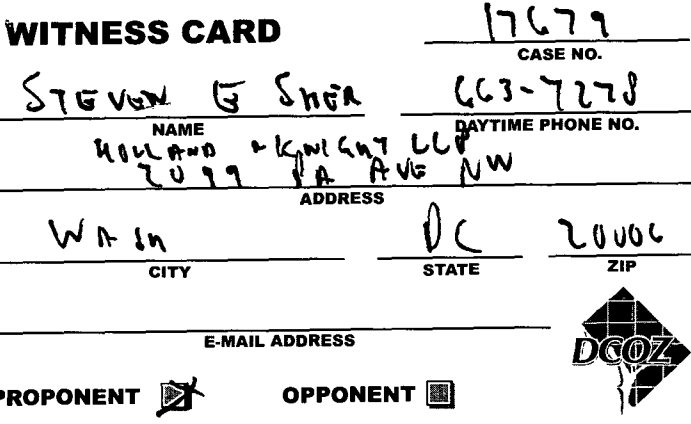 WITNESS CARD
17679
CASE NO.
STEVEN E SHER
663-7278
NAME
DAYTIME PHONE NO.
HOLLAND & KNIGHT LLP
2099 PA AVE NW
ADDRESS
WASH
DC
20006
CITY
STATE
ZIP
E-MAIL ADDRESS
DCOZ
PROPONENT
OPPONENT